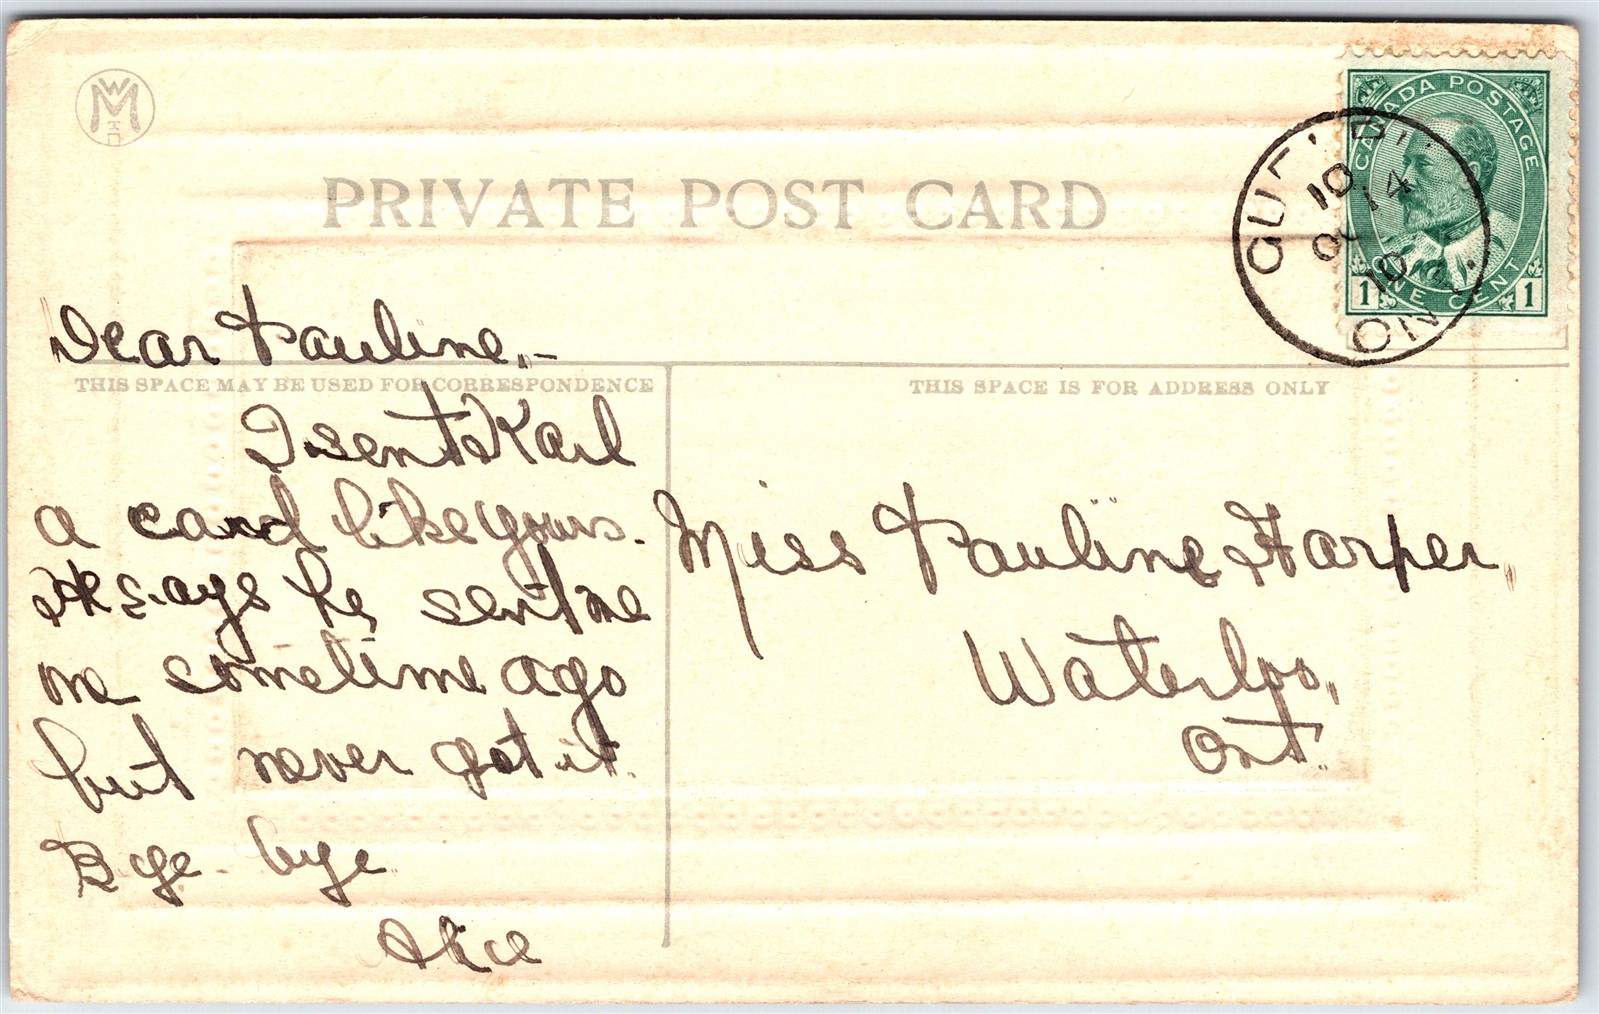 PRIVATE POST CARD
CANADA POSTAGE
ONE CENT
1 1
10
14
OC
10
ONT.
Dear Pauline,-
THIS SPACE MAY BE USED FOR CORRESPONDENCE
THIS SPACE IS FOR ADDRESS ONLY
I sent Karl
a card like yours.
He says he sent me
one sometime ago
but never got it.
Bye-bye
Alice
Miss Pauline Harper,
Waterloo,
Ont.